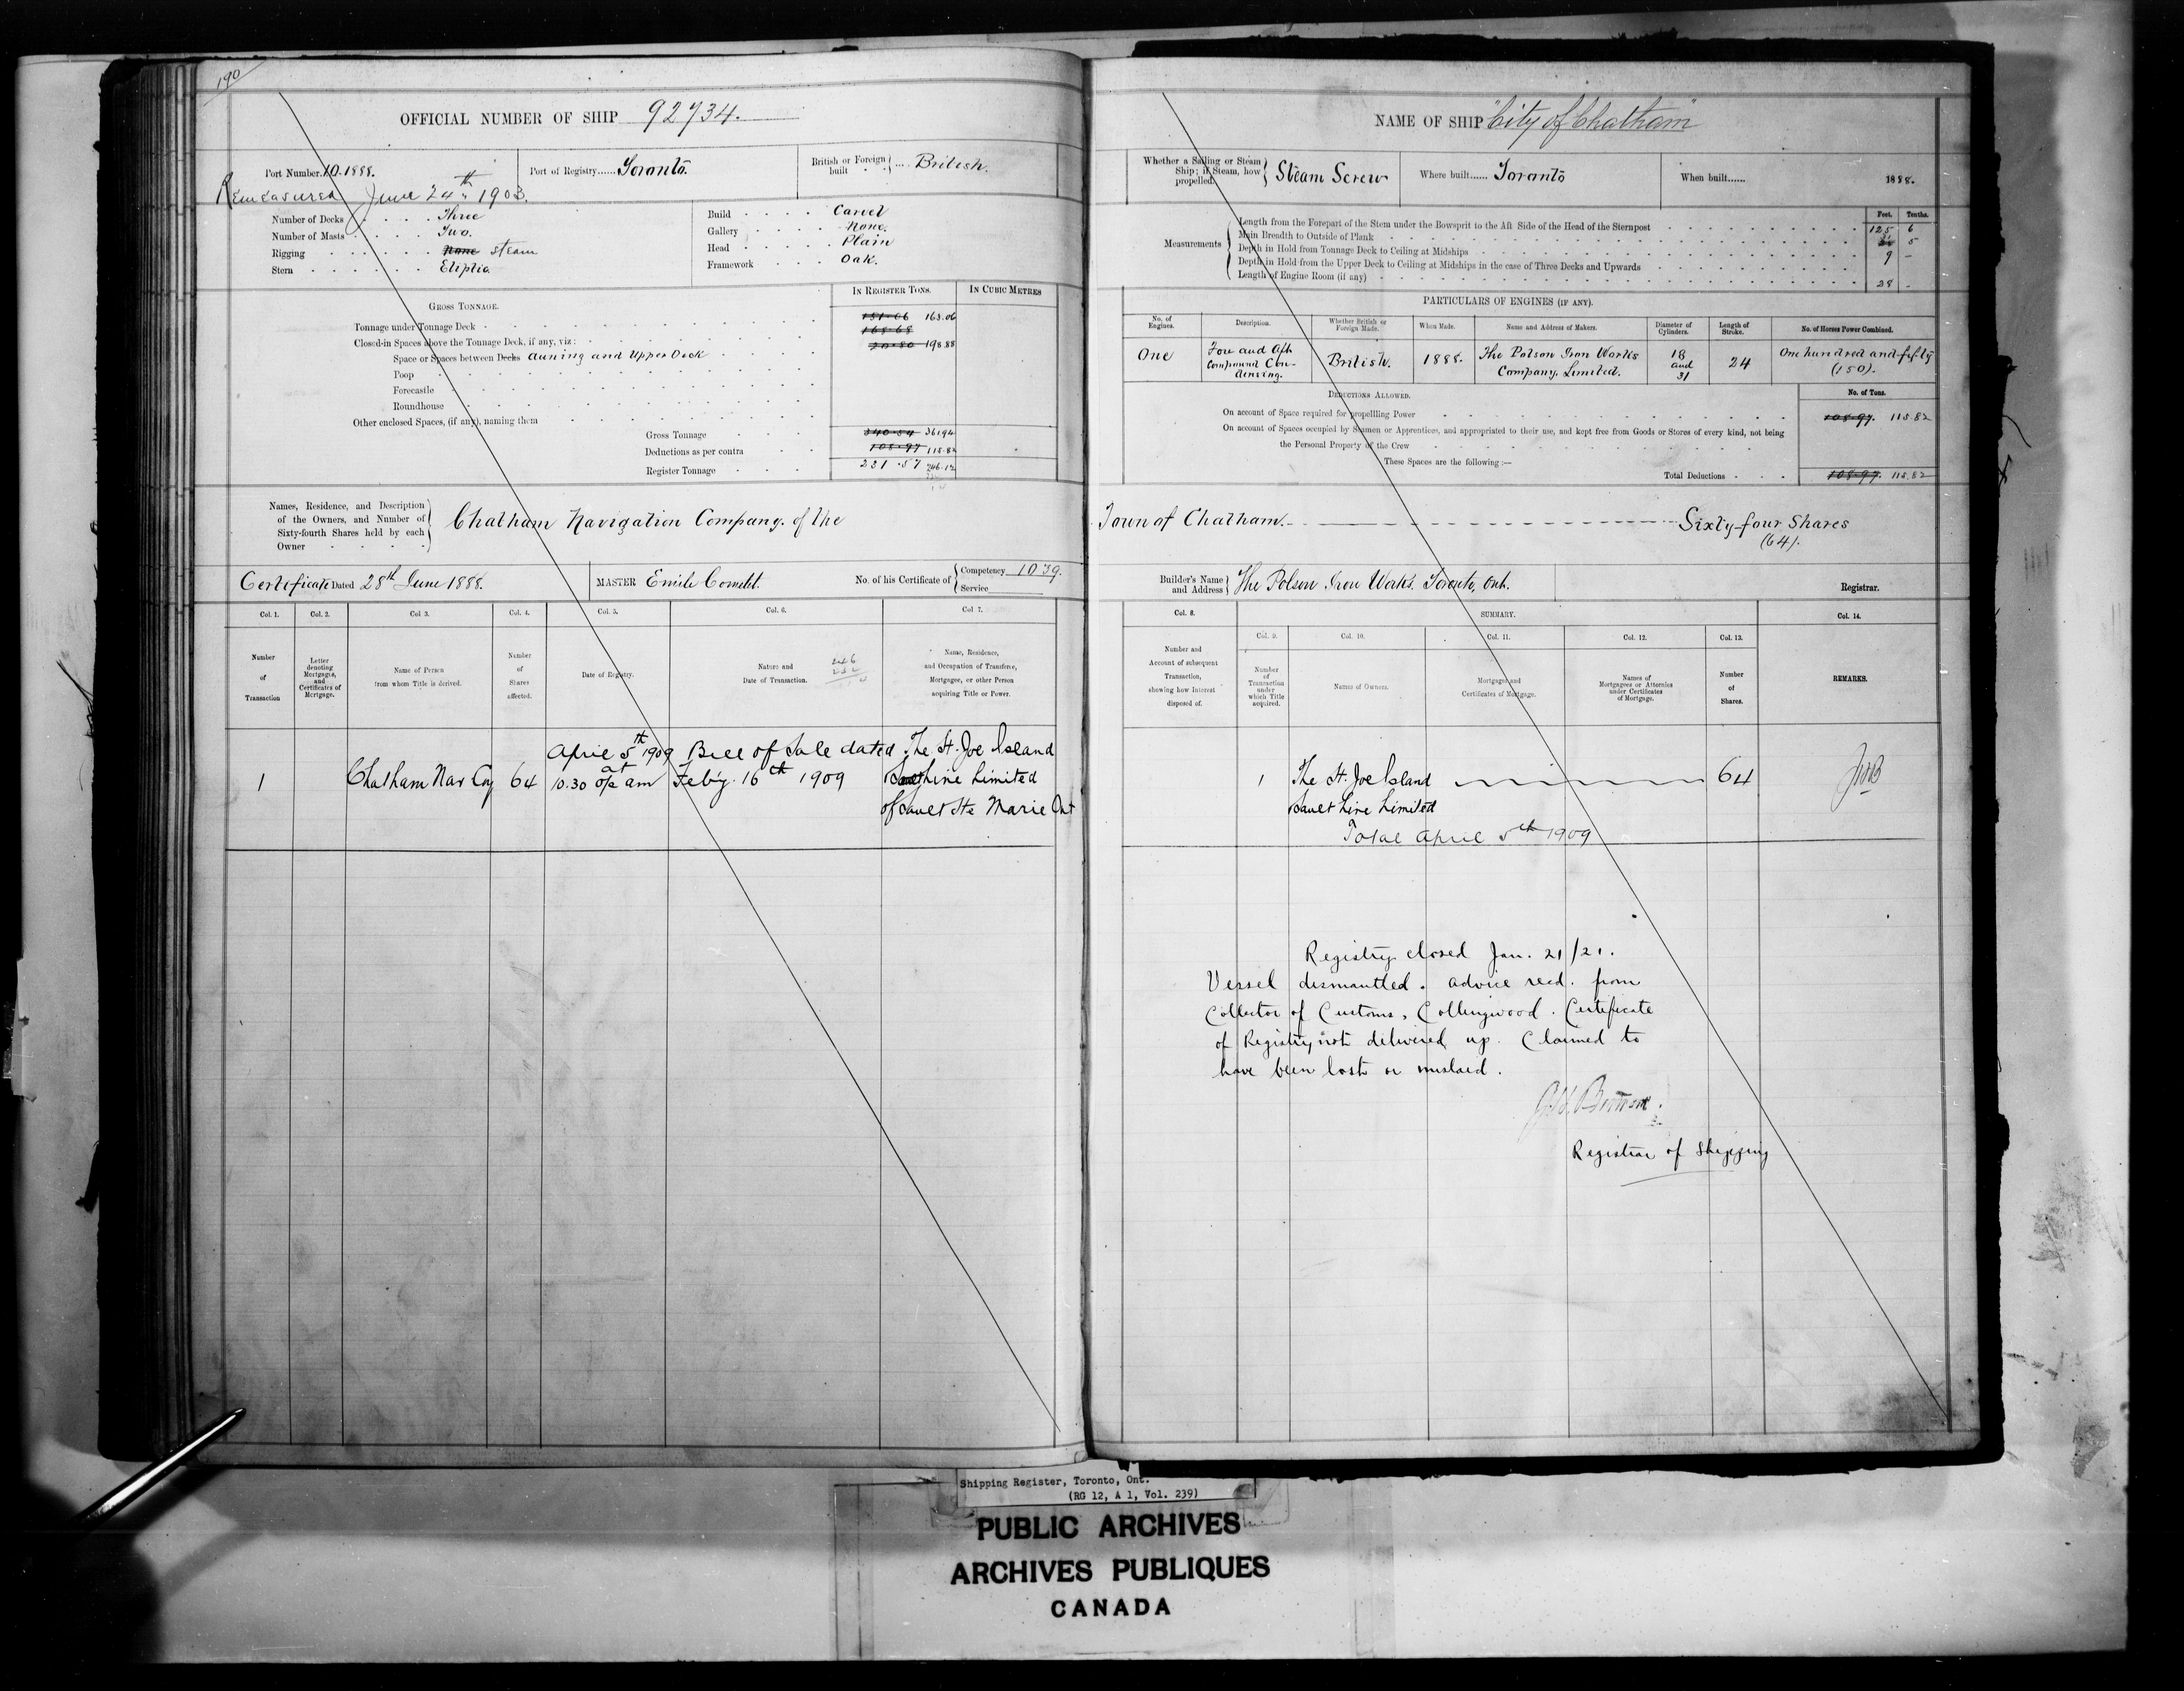 190
OFFICIAL NUMBER OF SHIP 92734.
Port Number. 10.1888.
Port of Registry...... Toronto.
British or Foreign built .... British.
Remeasured June 24th 1903.
Number of Decks . . . . Three
Number of Masts . . . . Two.
Rigging . . . . None steam
Stern . . . . Eliptic
Build . . . . Carvel
Gallery . . . . None.
Head . . . . Plain
Framework . . . Oak.
IN REGISTER TONS.
IN CUBIC METRES
GROSS TONNAGE.
Tonnage under Tonnage Deck . 163.06
Closed-in Spaces above the Tonnage Deck, if any, viz:
Space or Spaces between Decks Auning and Upper Deck 198.88
Poop
Forecastle
Roundhouse
Other enclosed Spaces, (if any), naming them
Gross Tonnage 340.54 361.94
Deductions as per contra 108.97 115.82
Register Tonnage 231.57 246.12
Names, Residence, and Description of the Owners, and Number of Sixty-fourth Shares held by each Owner
Chatham Navigation Company. of the
Certificate Dated 28th June 1888.
MASTER Emile
No. of his Certificate of Competency 1039.
Service
Col. 1.
Col. 2.
Col 3.
Col. 4.
Col. 5.
Col. 6.
Col 7.
Number of Transaction
Letter denoting Mortgages, and Certificates of Mortgage.
Name of Person from whom Title is derived.
Number of Shares affected.
Date of Registry.
Nature and Date of Transaction.
Name, Residence, and Occupation of Transferee, Mortgagee, or other Person acquiring Title or Power.
April 5th 1909 Bill of Sale dated The St. Joe Island
1 Chatham Nav Coy 64 10.30 am Feb'y. 16th 1909 Line Limited
of Sault Ste Marie Ont
NAME OF SHIP "City of Chatham"
Whether a Sailing or Steam Ship; if Steam, how propelled. Steam Screw
Where built...... Toronto
When built...... 1888.
Feet. Tenths.
Measurements
Length from the Forepart of the Stem under the Bowsprit to the Aft Side of the Head of the Sternpost 125 6
Main Breadth to Outside of Plank 5
Depth in Hold from Tonnage Deck to Ceiling at Midships 9 -
Depth in Hold from the Upper Deck to Ceiling at Midships in the case of Three Decks and Upwards
Length of Engine Room (if any) 28 -
PARTICULARS OF ENGINES (IF ANY).
No. of Engines.
Description.
Whether British or Foreign Made.
When Made.
Name and Address of Makers.
Diameter of Cylinders.
Length of Stroke.
No. of Horses Power Combined.
One
Fore and Aft Compound Condensing.
British.
1888.
The Polson Iron Works Company, Limited.
18 and 31
24
One hundred and fifty (150).
DEDUCTIONS ALLOWED.
No. of Tons.
On account of Space required for propelling Power 108.97. 115.82
On account of Spaces occupied by Seamen or Apprentices, and appropriated to their use, and kept free from Goods or Stores of every kind, not being
the Personal Property of the Crew
These Spaces are the following:—
Total Deductions . . . 108.97. 115.82
Town of Chatham. Sixty-four Shares
(64).
Builder's Name and Address The Polson Iron Works. Toronto, Ont.
Registrar.
Col. 8.
SUMMARY.
Col. 14.
Col. 9.
Col. 10.
Col. 11.
Col. 12.
Col. 13.
Number and Account of subsequent Transaction, showing how Interest disposed of.
Number of Transaction under which Title acquired.
Names of Owners.
Mortgages and Certificates of Mortgage.
Names of Mortgagees or Attornies under Certificates of Mortgage.
Number of Shares.
REMARKS.
1 The St. Joe Island 64
Sault Line Limited
Total April 5th 1909
Registry closed Jan. 21/21.
Vessel dismantled. advice recd. from
Collector of Customs, Collingwood. Certificate
of Registry not delivered up. Claimed to
have been lost or mislaid.
Registrar of Shipping
Shipping Register, Toronto, Ont.
(RG 12, A 1, Vol. 239)
PUBLIC ARCHIVES
ARCHIVES PUBLIQUES
CANADA